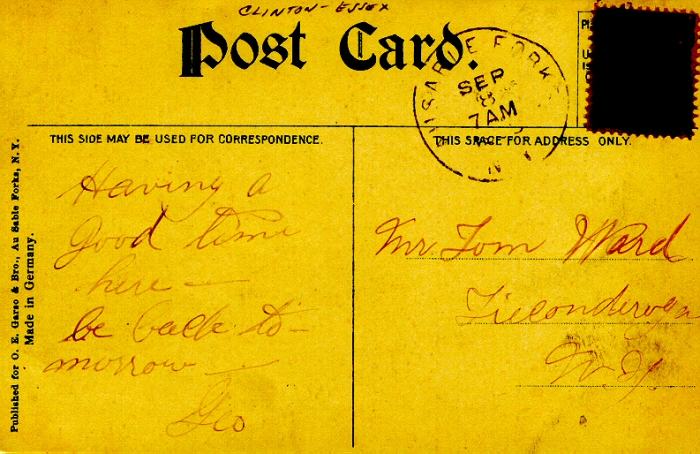 CLINTON - ESSEX
Post Card.
AUSABLE FORKS
SEP
8
7 AM
N.Y.
THIS SIDE MAY BE USED FOR CORRESPONDENCE.
THIS SPACE FOR ADDRESS ONLY.
Published for O. E. Garso & Bro., Au Sable Forks, N. Y.
Made in Germany.
Having a
good time
here —
be back to-
morrow —
Geo
Mr Tom Ward
Ticonderoga
N.Y.